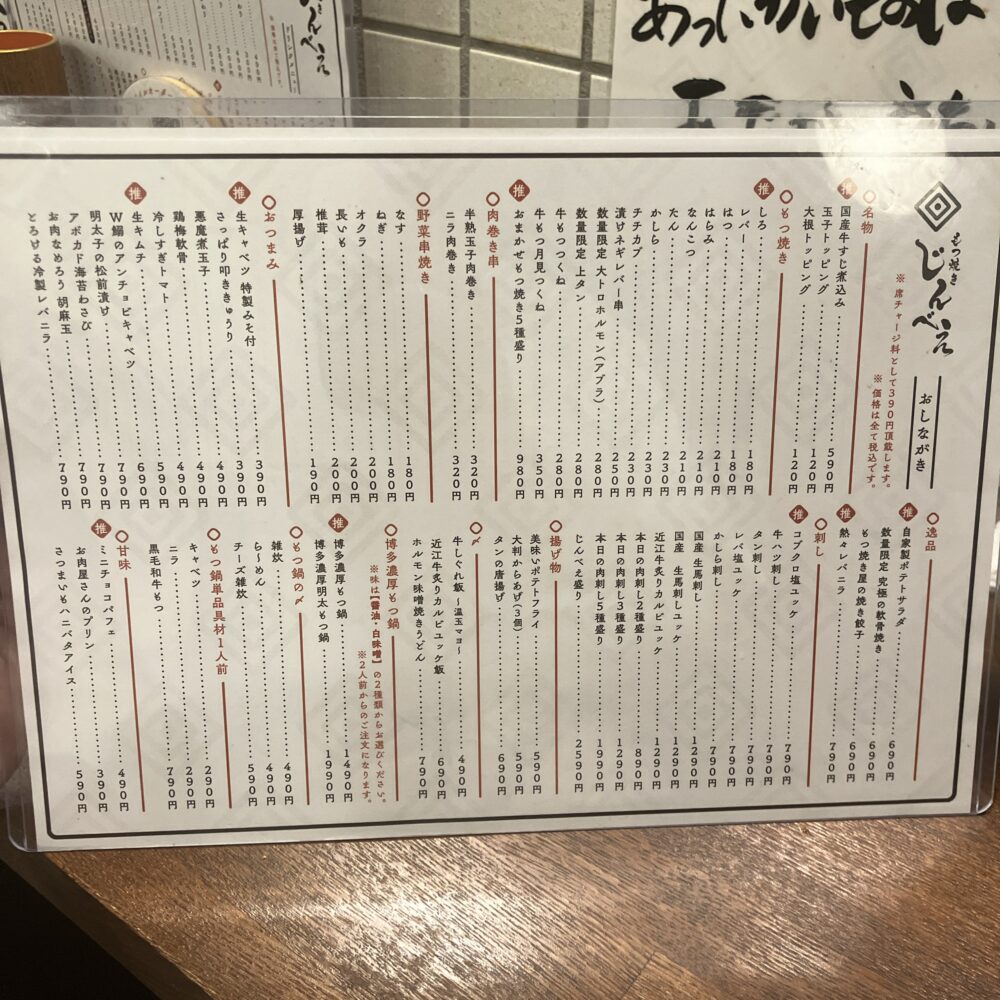 もつ焼き
じんべえ
おしながき
※席チャージ料として390円頂戴します。
※価格は全て税込です。
名物
推 国産牛すじ煮込み 590円
玉子トッピング 120円
大根トッピング 120円
もつ焼き
推 しろ 180円
レバー 180円
はつ 180円
はらみ 210円
なんこつ 210円
たん 210円
かしら 230円
チチカブ 230円
漬けネギレバー串 230円
数量限定 大トロホルモン(アブラ) 250円
数量限定 上タン 280円
牛もつつくね 280円
牛もつ月見つくね 350円
推 おまかせもつ焼き5種盛り 980円
肉巻き串
半熟玉子肉巻き 320円
ニラ肉巻き 320円
野菜串焼き
なす 180円
ねぎ 180円
オクラ 200円
長いも 200円
椎茸 200円
厚揚げ 190円
おつまみ
推 生キャベツ 特製みそ付 390円
さっぱり叩ききゅうり 390円
悪魔煮玉子 490円
鶏梅軟骨 490円
冷しすぎトマト 590円
推 生キムチ 690円
W鰯のアンチョビキャベツ 790円
明太子の松前漬け 790円
アボカド海苔わさび 790円
お肉なめろう 胡麻玉 790円
とろける冷製レバニラ 790円
逸品
推 自家製ポテトサラダ 690円
数量限定 究極の軟骨焼き 690円
もつ焼き屋の焼き餃子 690円
推 熱々レバニラ 790円
刺し
推 コブクロ塩ユッケ 790円
牛ハツ刺し 790円
タン刺し 790円
レバ塩ユッケ 790円
かしら刺し 790円
国産 生馬刺し 1290円
国産 生馬刺しユッケ 1290円
近江牛炙りカルビユッケ 1290円
本日の肉刺し2種盛り 890円
本日の肉刺し3種盛り 1290円
本日の肉刺し5種盛り 1990円
じんべえ盛り 2590円
揚げ物
美味いポテトフライ 590円
大判からあげ(3個) 590円
タンの唐揚げ 690円
〆
牛しぐれ飯 〜温玉マヨ〜 490円
近江牛炙りカルビユッケ飯 690円
ホルモン味噌焼きうどん 790円
博多濃厚もつ鍋
※味は【醤油・白味噌】の2種類からお選びください。
※2人前からのご注文になります。
推 博多濃厚もつ鍋 1490円
博多濃厚明太もつ鍋 1990円
もつ鍋の〆
雑炊 490円
らーめん 490円
チーズ雑炊 590円
もつ鍋単品具材1人前
キャベツ 290円
ニラ 290円
黒毛和牛もつ 790円
甘味
推 ミニチョコパフェ 490円
お肉屋さんのプリン 390円
さつまいもハニバタアイス 590円
じんべえ